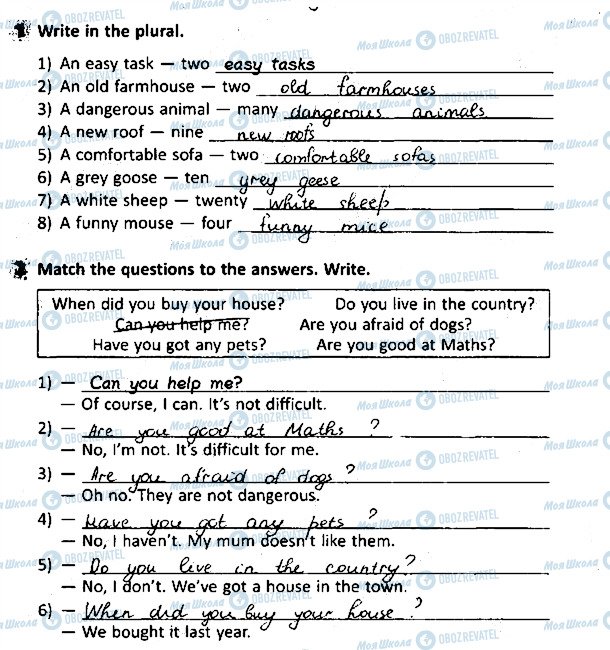 1 Write in the plural.
1) An easy task — two easy tasks
2) An old farmhouse — two old farmhouses
3) A dangerous animal — many dangerous animals
4) A new roof — nine new roofs
5) A comfortable sofa — two comfortable sofas
6) A grey goose — ten grey geese
7) A white sheep — twenty white sheep
8) A funny mouse — four funny mice
Match the questions to the answers. Write.
When did you buy your house? Do you live in the country?
Can you help me? Are you afraid of dogs?
Have you got any pets? Are you good at Maths?
1) — Can you help me?
— Of course, I can. It's not difficult.
2) — Are you good at Maths ?
— No, I'm not. It's difficult for me.
3) — Are you afraid of dogs ?
— Oh no. They are not dangerous.
4) — Have you got any pets ?
— No, I haven't. My mum doesn't like them.
5) — Do you live in the country?
— No, I don't. We've got a house in the town.
6) — When did you buy your house ?
— We bought it last year.
Моя Школа OBOZREVATEL